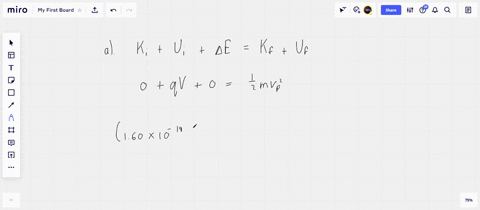 miro My First Board Share
a) K₁ + U₁ + ΔE = K_f + U_f
0 + qV + 0 = ½ mv_f²
(1.60 × 10⁻¹⁹
75%